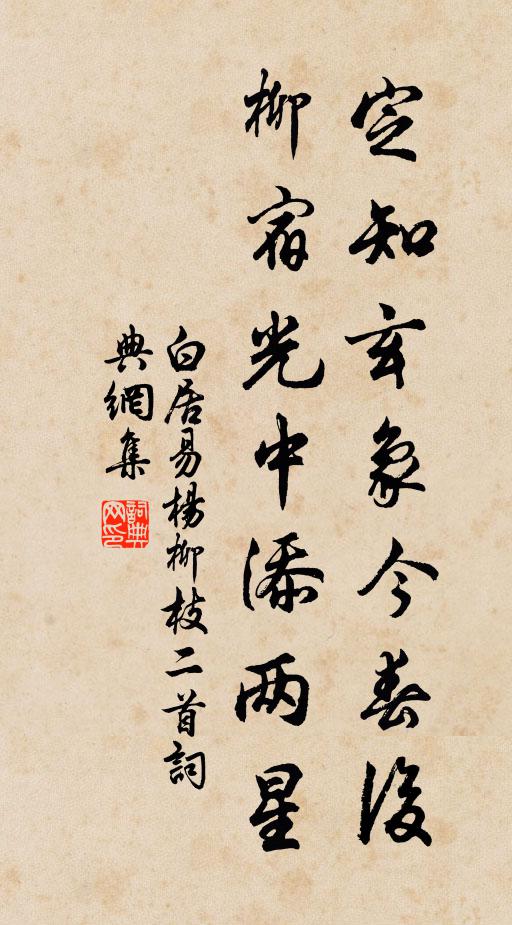 定知玄象今春後
柳宿光中添两星
白居易楊柳枝二首詞
典網集
詞典
网印